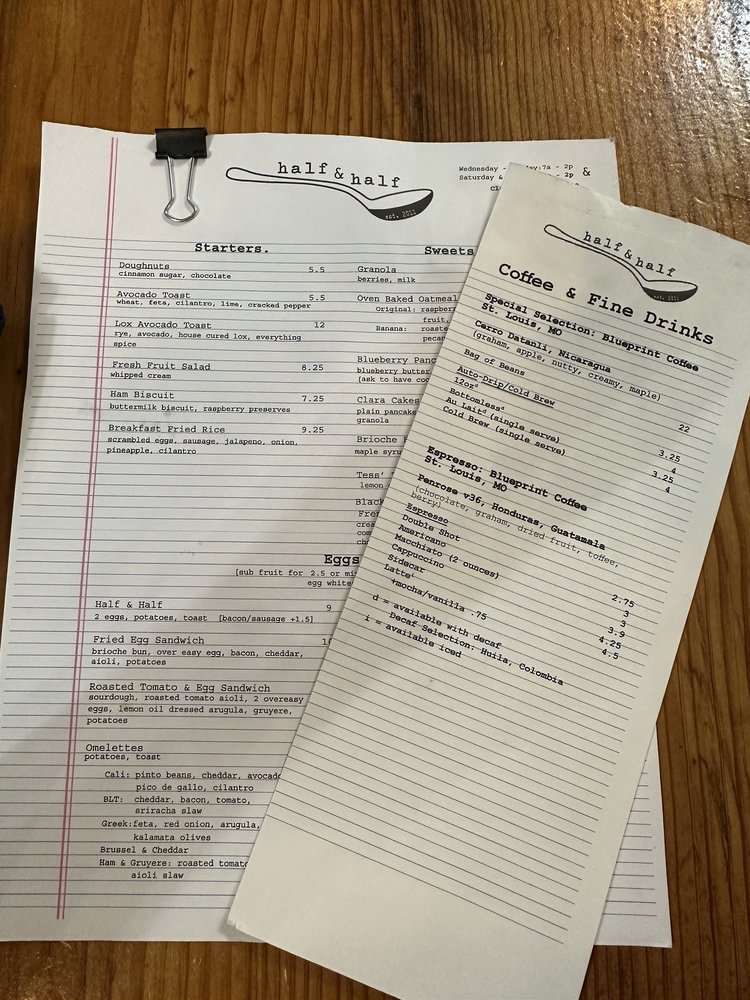 half & half
est. 2011
Wednesday - 7a - 2p
Saturday & - 2p &
Starters.
Doughnuts 5.5
cinnamon sugar, chocolate
Avocado Toast 5.5
wheat, feta, cilantro, lime, cracked pepper
Lox Avocado Toast 12
rye, avocado, house cured lox, everything
spice
Fresh Fruit Salad 8.25
whipped cream
Ham Biscuit 7.25
buttermilk biscuit, raspberry preserves
Breakfast Fried Rice 9.25
scrambled eggs, sausage, jalapeno, onion,
pineapple, cilantro
Sweets
Granola
berries, milk
Oven Baked Oatmeal
Original: raspberr
fruit,
Banana: roaste
pecan
Blueberry Panc
blueberry butter
[ask to have coc
Clara Cakes
plain pancake
granola
Brioche F
maple syru
Tess'
lemon
Black
Fren
crea
com
cho
Eggs
[sub fruit for 2.5 or mi
egg white
Half & Half 9
2 eggs, potatoes, toast [bacon/sausage +1.5]
Fried Egg Sandwich
brioche bun, over easy egg, bacon, cheddar,
aioli, potatoes
Roasted Tomato & Egg Sandwich
sourdough, roasted tomato aioli, 2 overeasy
eggs, lemon oil dressed arugula, gruyere,
potatoes
Omelettes
potatoes, toast
Cali: pinto beans, cheddar, avocado
pico de gallo, cilantro
BLT: cheddar, bacon, tomato,
sriracha slaw
Greek:feta, red onion, arugula,
kalamata olives
Brussel & Cheddar
Ham & Gruyere: roasted tomato
aioli slaw
half & half
est. 2011
Coffee & Fine Drinks
Special Selection: Blueprint Coffee
St. Louis, MO
Cerro Datanli, Nicaragua
(graham, apple, nutty, creamy, maple)
Bag of Beans 22
Auto-Drip/Cold Brew
12oz d 3.25
Bottomless d 4
Au Lait d (single serve) 3.25
Cold Brew (single serve) 4
Espresso: Blueprint Coffee
St. Louis, MO
Penrose v36, Honduras, Guatamala
(chocolate, graham, dried fruit, toffee,
berry)
Espresso
Double Shot 2.75
Americano 3
Macchiato (2 ounces) 3
Cappuccino 3.9
Sidecar 4.25
Latte i 4.5
+mocha/vanilla .75
d = available with decaf
Decaf Selection: Huila, Colombia
i = available iced